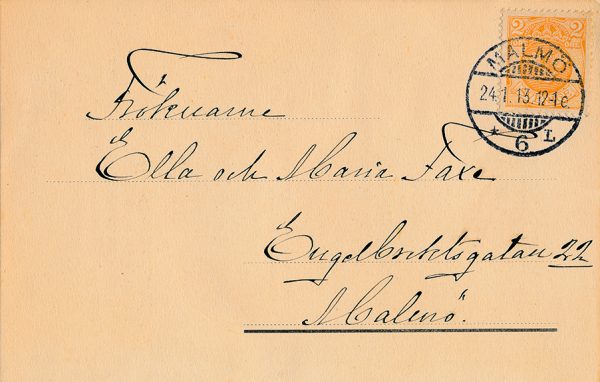 2 2
MALMÖ
24.1.13.12-1 e
* 6 L
Fröknarne
Ella och Maria Faxe
Engelbrektsgatan 22
Malmö.